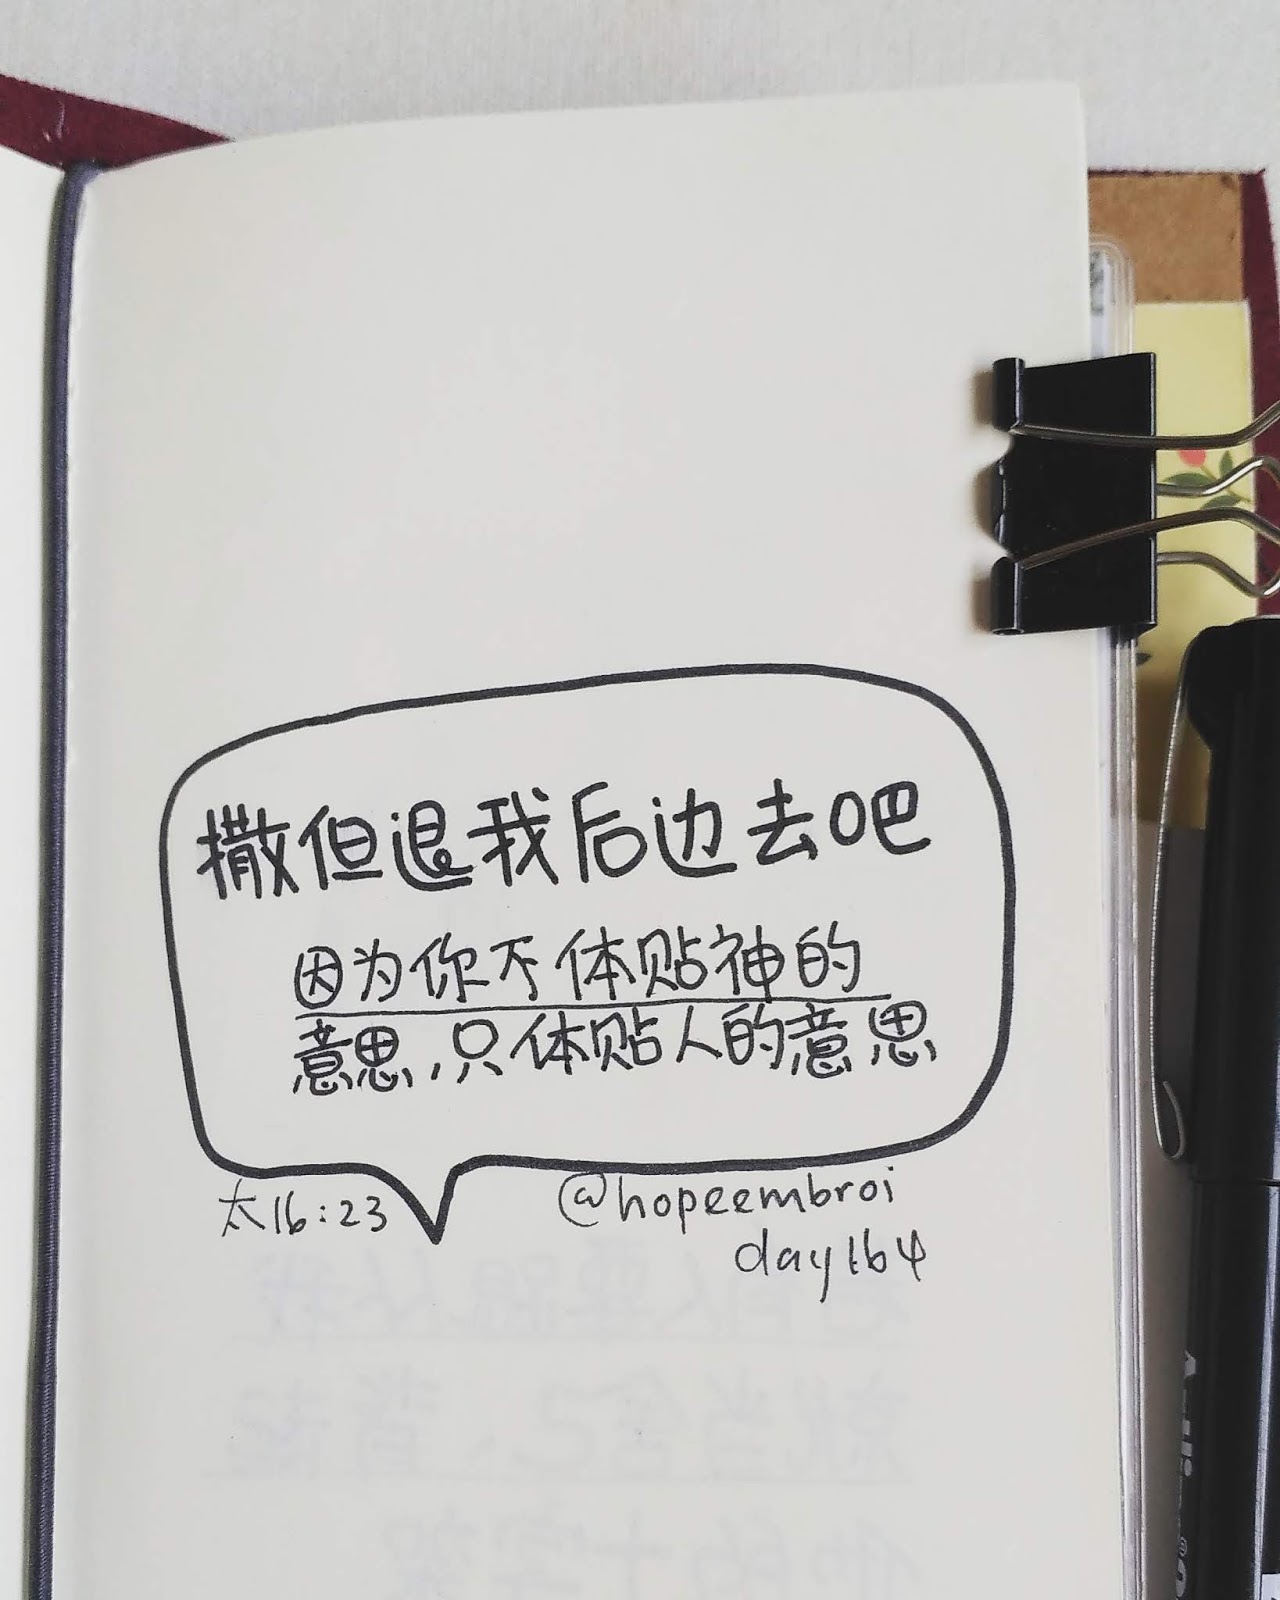 撒但退我后边去吧
因为你不体贴神的
意思,只体贴人的意思
太16:23
@hopeembroi
day164